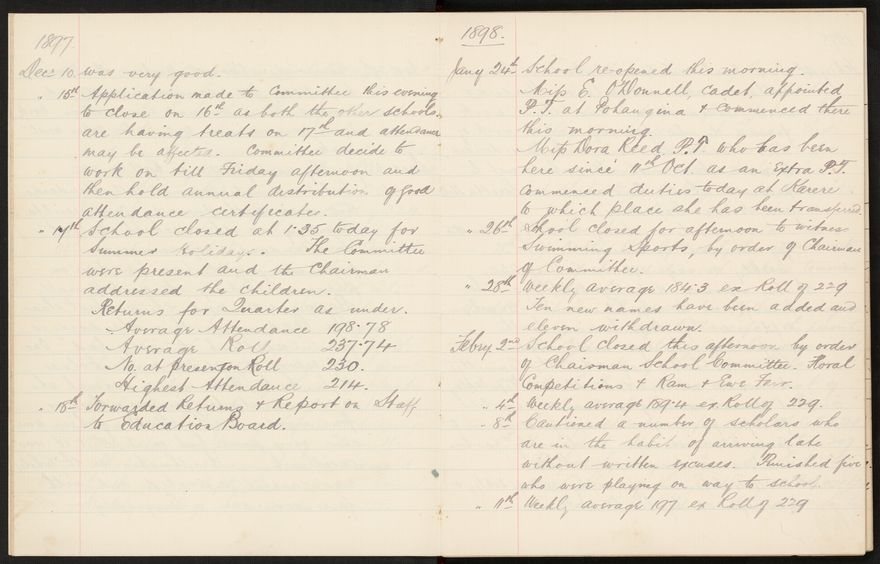 1897.
Decr 10. was very good.
" 15th Application made to Committee this evening
to close on 16th as both the other schools
are having treats on 17th and attendance
may be affected. Committee decide to
work on till Friday afternoon and
then hold annual distribution of good
attendance certificates.
" 17th School closed at 1.35 today for
Summer holidays. The Committee
were present and the Chairman
addressed the children.
Returns for Quarter as under.
Average Attendance 198.78
Average Roll 237.74
No. at present on Roll 230.
Highest Attendance 214.
" 18th Forwarded Returns & Report on Staff
to Education Board.
1898.
Jany 24th School re-opened this morning.
Miss E. O'Donnell, Cadet, appointed
P.T. at Pohangina & commenced there
this morning.
Miss Dora Reed P.T who has been
here since 11th Oct. as an Extra P.T.
commenced duties today at Karere
to which place she has been transferred.
" 26th School closed for afternoon to witness
Swimming Sports, by order of Chairman
of Committee.
" 28th Weekly average 184.3 ex Roll of 229
Ten new names have been added and
eleven withdrawn.
Febry 2nd School closed this afternoon by order
of Chairman School Committee. Floral
Competitions & Ram & Ewe Fair.
" 4th Weekly average 189.4 ex. Roll of 229.
" 8th Cautioned a number of scholars who
are in the habit of arriving late
without written excuses. Punished five
who were playing on way to school.
" 11th Weekly average 197 ex Roll of 229